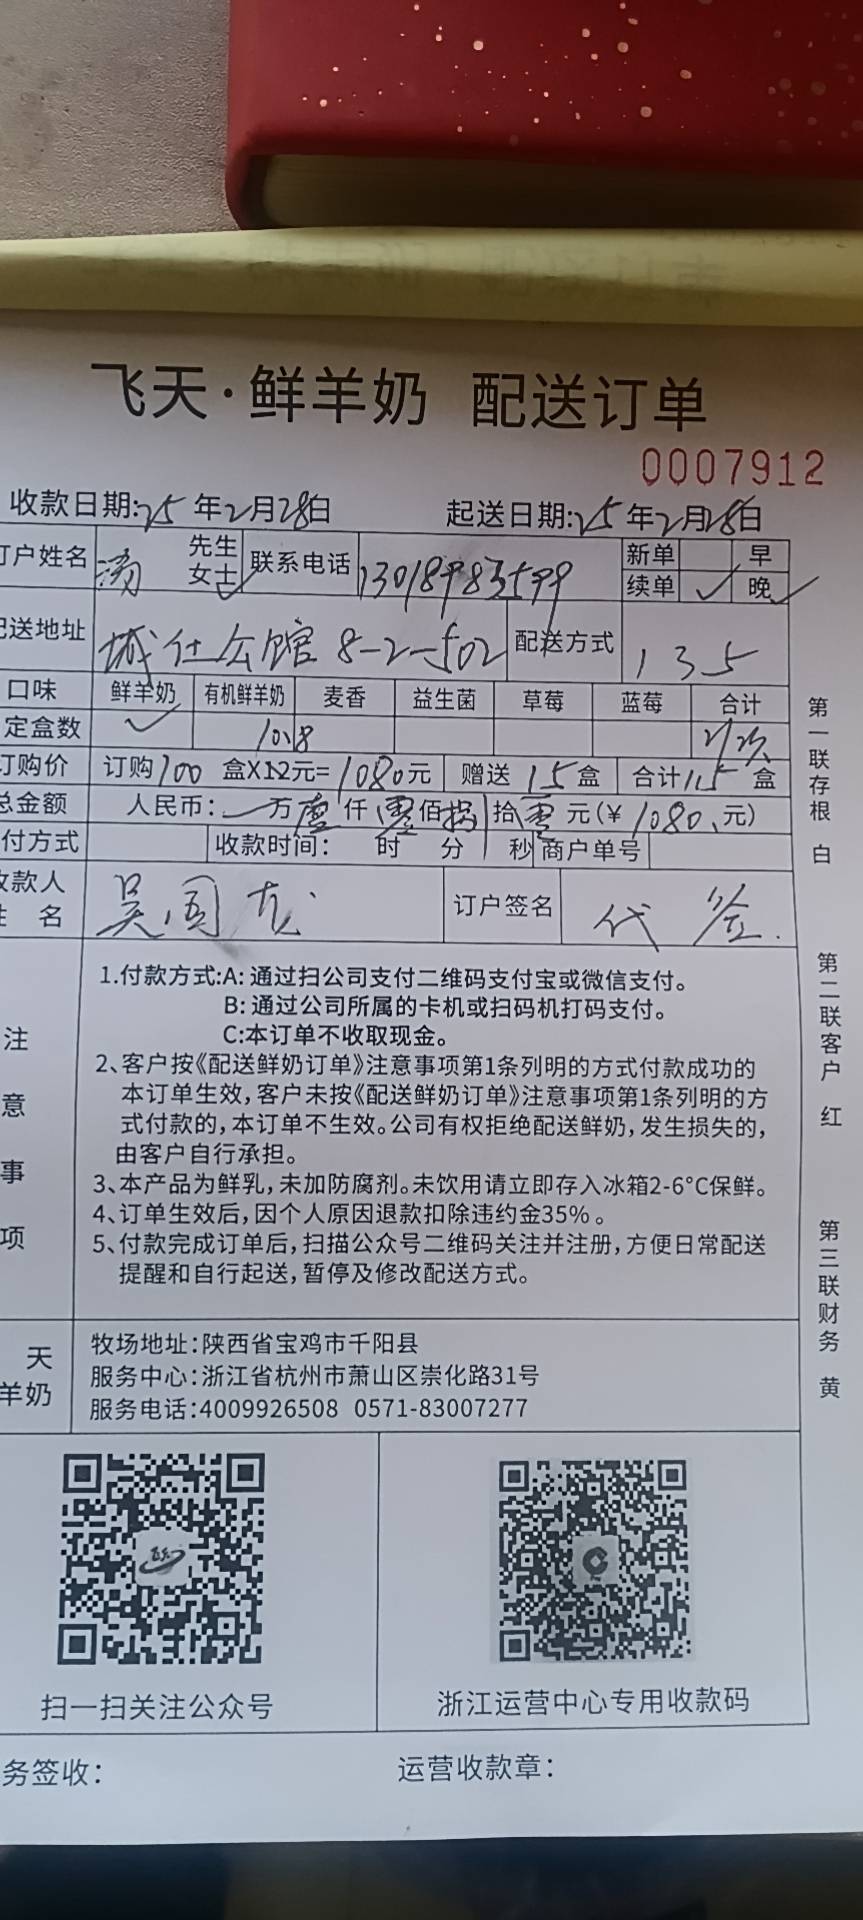 飞天·鲜羊奶 配送订单
0007912
收款日期:25年2月28日 起送日期:25年2月28日
订户姓名 汤 先生 女士 联系电话 新单 早
续单 ✓ 晚 ✓
配送地址 城仕公馆 8-2-502 配送方式 135
口味 鲜羊奶 有机鲜羊奶 麦香 益生菌 草莓 蓝莓 合计
定盒数 ✓ 10.8
订购价 订购100盒X12元=1080元 赠送15盒 合计115盒
总金额 人民币:一万 仟 佰捌拾零元(¥1080.元)
付方式 收款时间: 时 分 秒 商户单号
收款人姓名 吴国 订户签名 代签.
注意事项
1.付款方式:A:通过扫公司支付二维码支付宝或微信支付。
B:通过公司所属的卡机或扫码机打码支付。
C:本订单不收取现金。
2、客户按《配送鲜奶订单》注意事项第1条列明的方式付款成功的
本订单生效,客户未按《配送鲜奶订单》注意事项第1条列明的方
式付款的,本订单不生效。公司有权拒绝配送鲜奶,发生损失的,
由客户自行承担。
3、本产品为鲜乳,未加防腐剂。未饮用请立即存入冰箱2-6°C保鲜。
4、订单生效后,因个人原因退款扣除违约金35%。
5、付款完成订单后,扫描公众号二维码关注并注册,方便日常配送
提醒和自行起送,暂停及修改配送方式。
天
羊奶
牧场地址:陕西省宝鸡市千阳县
服务中心:浙江省杭州市萧山区崇化路31号
服务电话:4009926508 0571-83007277
扫一扫关注公众号 浙江运营中心专用收款码
务签收: 运营收款章:
第一联存根 白
第二联客户 红
第三联财务 黄